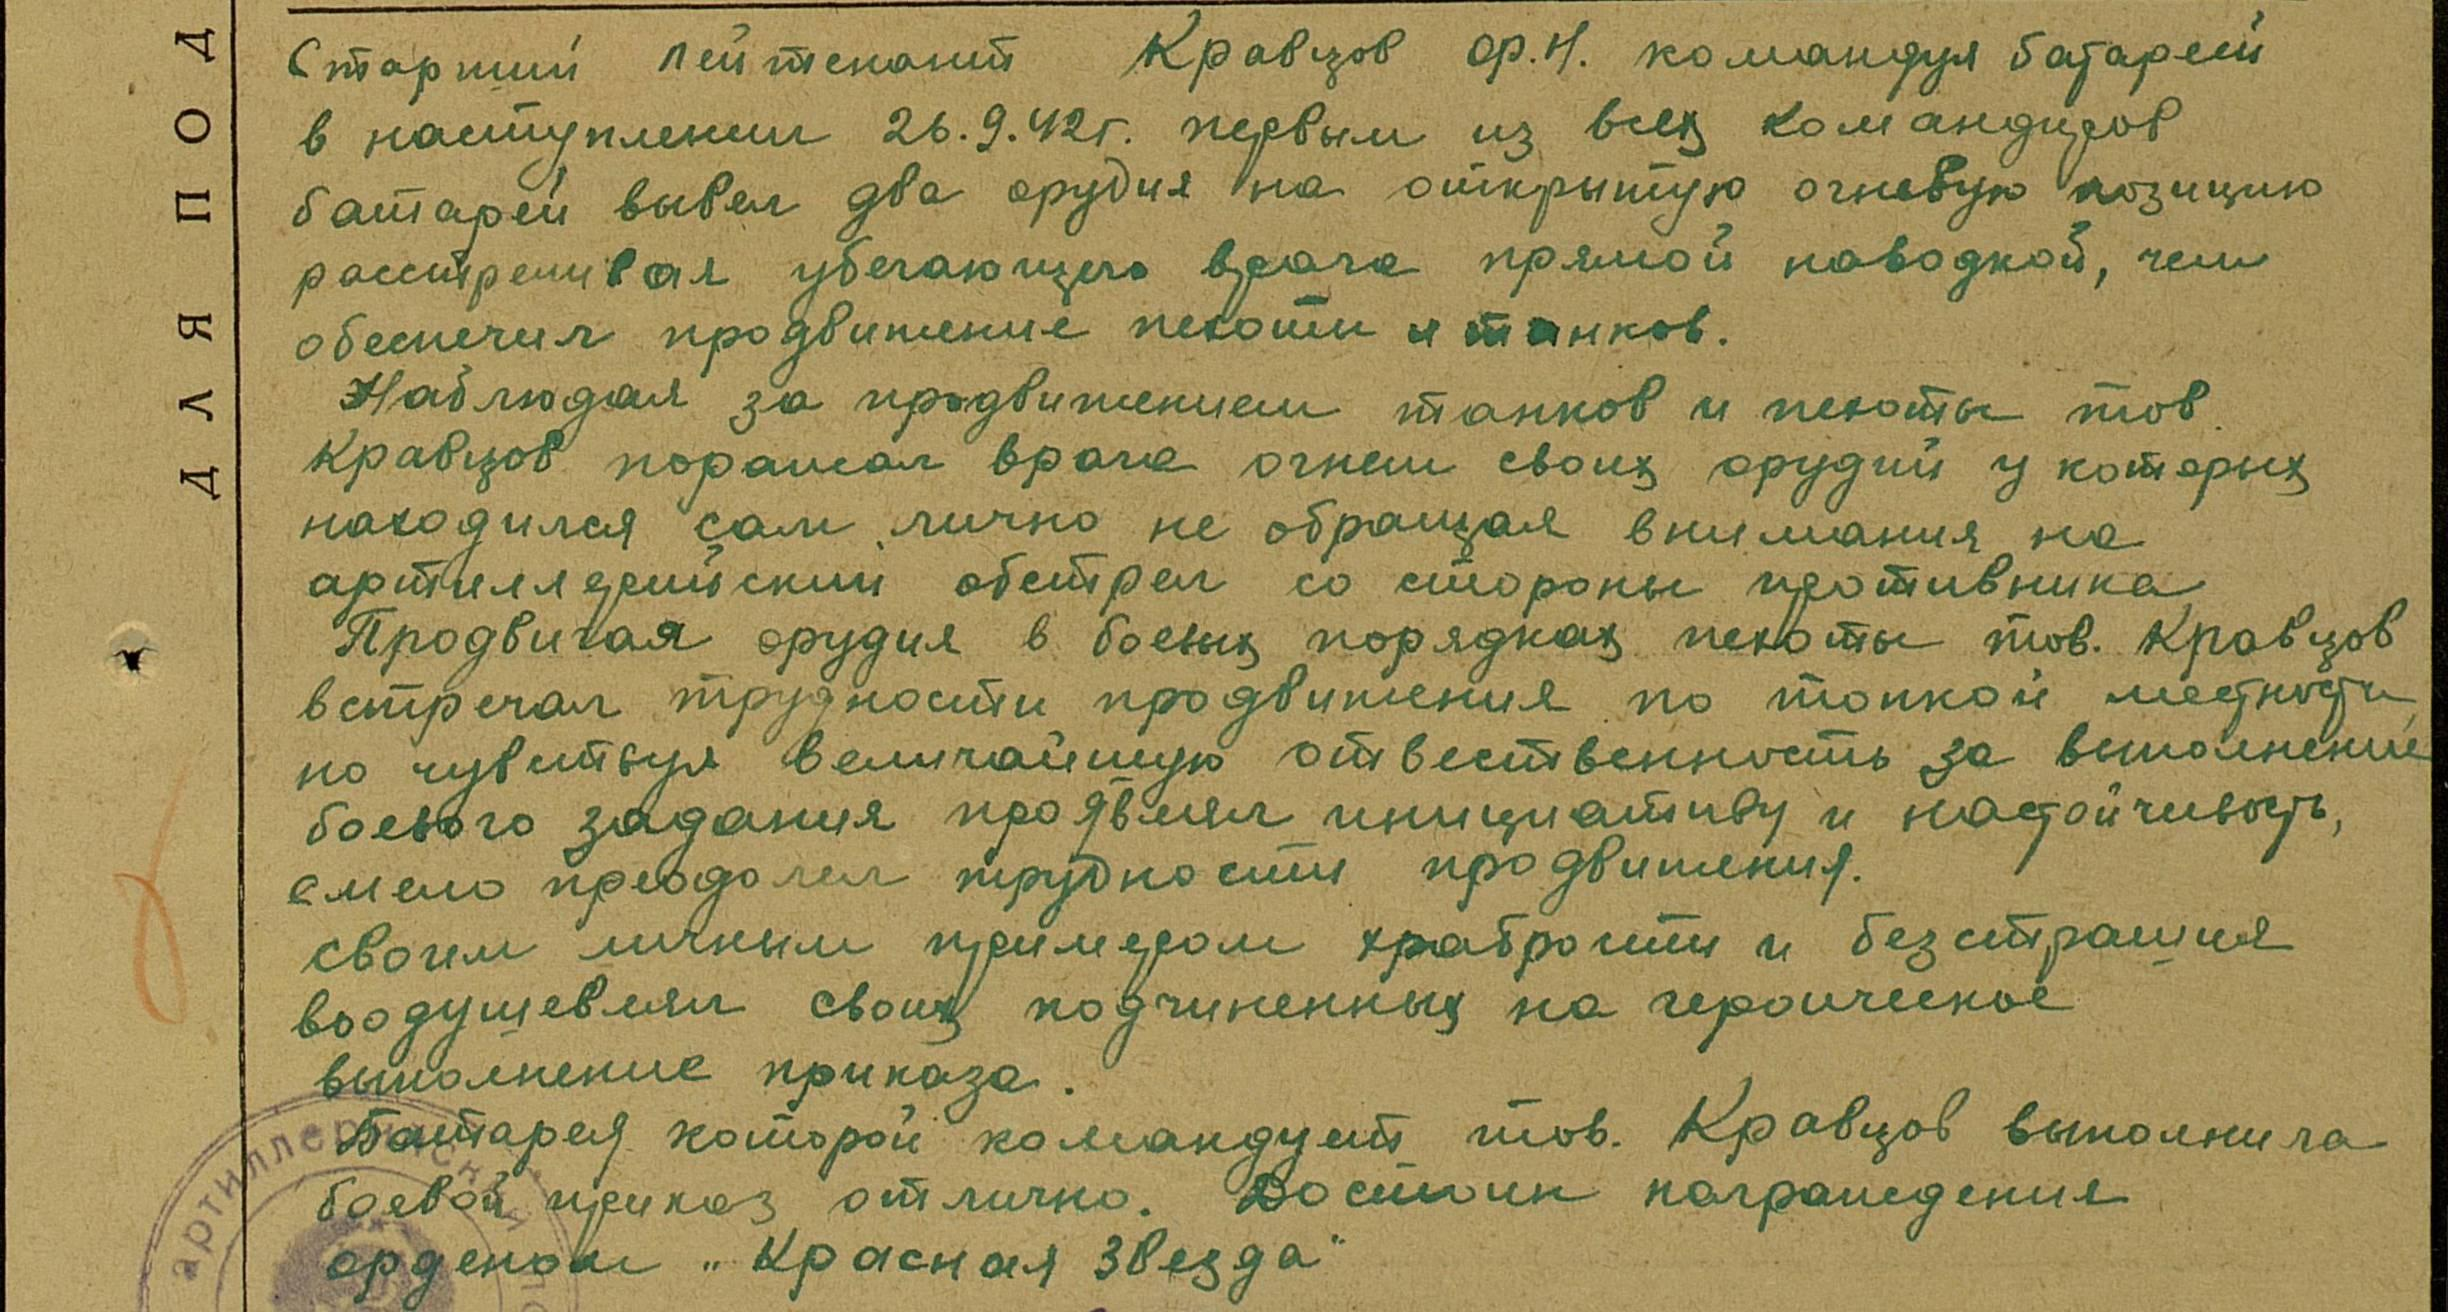 Старший лейтенант Кравцов Ф.Н. командуя батареей
в наступлении 26.9.42г. первым из всех командиров
батарей вывел два орудия на открытую огневую позицию
расстреливая убегающего врага прямой наводкой, чем
обеспечил продвижение пехоты и танков.
Наблюдая за продвижением танков и пехоты тов.
Кравцов поражал врага огнем своих орудий у которых
находился сам лично не обращая внимания на
артиллерийский обстрел со стороны противника
Продвигая орудия в боевых порядках пехоты тов. Кравцов
встречал трудности продвижения по топкой местности,
но чувствуя величайшую отвественность за выполнение
боевого задания проявлял инициативу и настойчивость,
смело преодолел трудности продвижения.
Своим личным примером храбрости и безстрашия
воодушевлял своих подчиненных на героическое
выполнение приказа.
Батарея которой командует тов. Кравцов выполнила
боевой приказ отлично. Достоин награждения
орденом „Красная Звезда"
ДЛЯ ПОД
артиллерийский